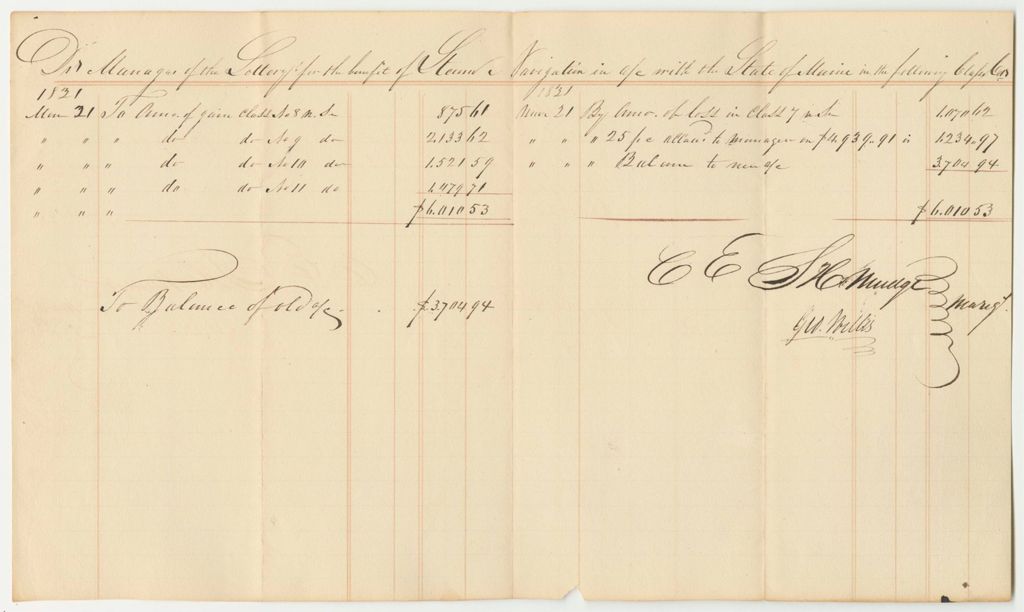 Dr Managers of the Lottery for the benefit of Steam Navigation in a/c with the State of Maine in the following Classes Cr
1821 1821
Mar 21 To Amo. of gain Class No 8 n. Se 875 61 Mar 21 By Amo. of loss in Class 7 n. Se 1.070 62
" " " do do No 9 do 2.133 62 " " " 25 p c allowed to managers on $4.939.91 is 1.234.97
" " " do do No 10 do 1.521 59 " " " Balance to new a/c 3.704 94
" " " do do No 11 do 1.479 71
" " " $6.010 53 $6.010 53
C E
Mudge
Geo. Willis
Manrs
To Balance of old a/c $3.704 94